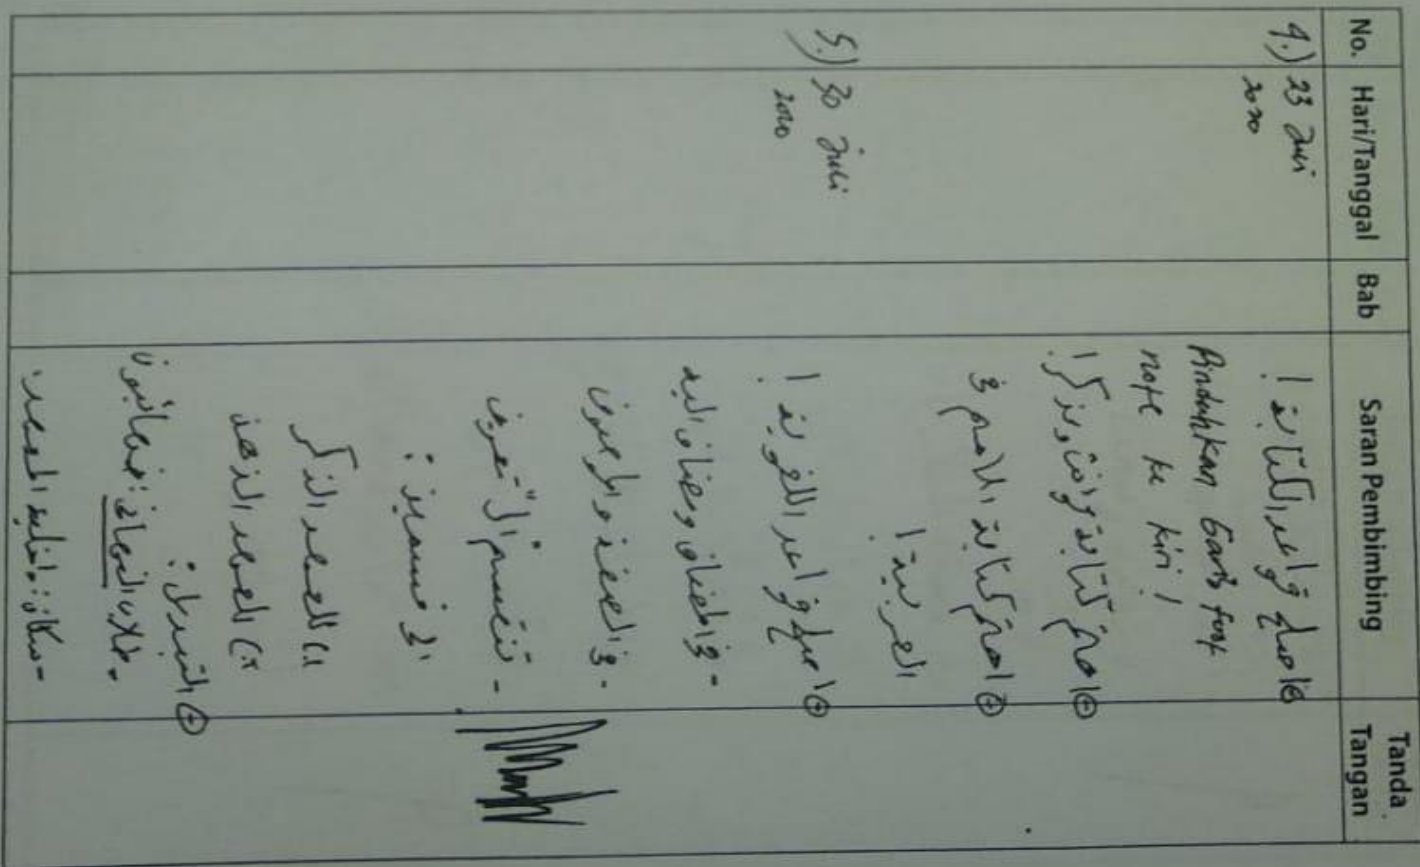 No. Hari/Tanggal Bab Saran Pembimbing Tanda Tangan
4.) 23 Juli
2020
اصلح قواعد الكتابة !
Pindahkan Garis foot
note ke kiri !
⊕ اهتم كتابة وانث وذكر !
⊕ اهتم كتابة الاسم في
العربية !
5.) 30 Juli
2020
⊕ اصلح قواعد اللغوية !
- في المضاف ومضاف اليه
- في الصفة والموصوف
- تنقسم ال" تعريف
الى قسمين :
١) العهد الذكر
٢) العهد الذهن
⊕ التبديل :